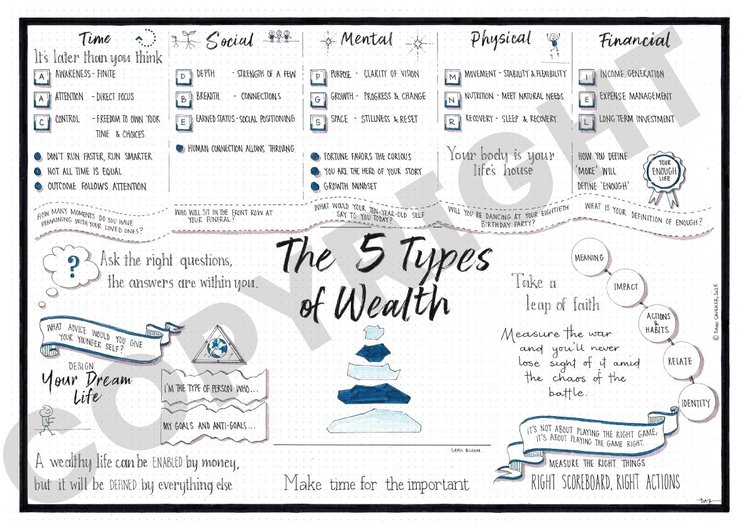 Time
It's later than you think
A AWARENESS - FINITE
A ATTENTION - DIRECT FOCUS
C CONTROL - FREEDOM TO OWN YOUR
TIME & CHOICES
DON'T RUN FASTER, RUN SMARTER
NOT ALL TIME IS EQUAL
OUTCOME FOLLOWS ATTENTION
HOW MANY MOMENTS DO YOU HAVE
REMAINING WITH YOUR LOVED ONES?
Social
D DEPTH - STRENGTH OF A FEW
B BREADTH - CONNECTIONS
E EARNED STATUS - SOCIAL POSITIONING
HUMAN CONNECTION ALLOWS THRIVING
WHO WILL SIT IN THE FRONT ROW AT
YOUR FUNERAL?
Mental
P PURPOSE - CLARITY OF VISION
G GROWTH - PROGRESS & CHANGE
S SPACE - STILLNESS & RESET
FORTUNE FAVORS THE CURIOUS
YOU ARE THE HERO OF YOUR STORY
GROWTH MINDSET
WHAT WOULD YOUR TEN-YEAR-OLD SELF
SAY TO YOU TODAY?
Physical
M MOVEMENT - STABILITY & FLEXIBILITY
N NUTRITION - MEET NATURAL NEEDS
R RECOVERY - SLEEP & RECOVERY
Your body is your
life's house
WILL YOU BE DANCING AT YOUR EIGHTIETH
BIRTHDAY PARTY?
Financial
I INCOME GENERATION
E EXPENSE MANAGEMENT
L LONG TERM INVESTMENT
HOW YOU DEFINE
'MORE' WILL
DEFINE 'ENOUGH'
YOUR
ENOUGH
LIFE
WHAT IS YOUR DEFINITION OF ENOUGH?
The 5 Types
of Wealth
?
Ask the right questions,
the answers are within you.
WHAT ADVICE WOULD YOU GIVE
YOUR YOUNGER SELF?
DESIGN
Your Dream
Life
I'M THE TYPE OF PERSON WHO...
MY GOALS AND ANTI-GOALS...
A wealthy life can be ENABLED by money,
but it will be DEFINED by everything else
SAHIL BLOOM
Make time for the important
Take a
leap of faith
Measure the war
and you'll never
lose sight of it amid
the chaos of the
battle.
MEANING
IMPACT
ACTIONS
&
HABITS
RELATE
IDENTITY
IT'S NOT ABOUT PLAYING THE RIGHT GAME,
IT'S ABOUT PLAYING THE GAME RIGHT.
MEASURE THE RIGHT THINGS
RIGHT SCOREBOARD, RIGHT ACTIONS
COPYRIGHT